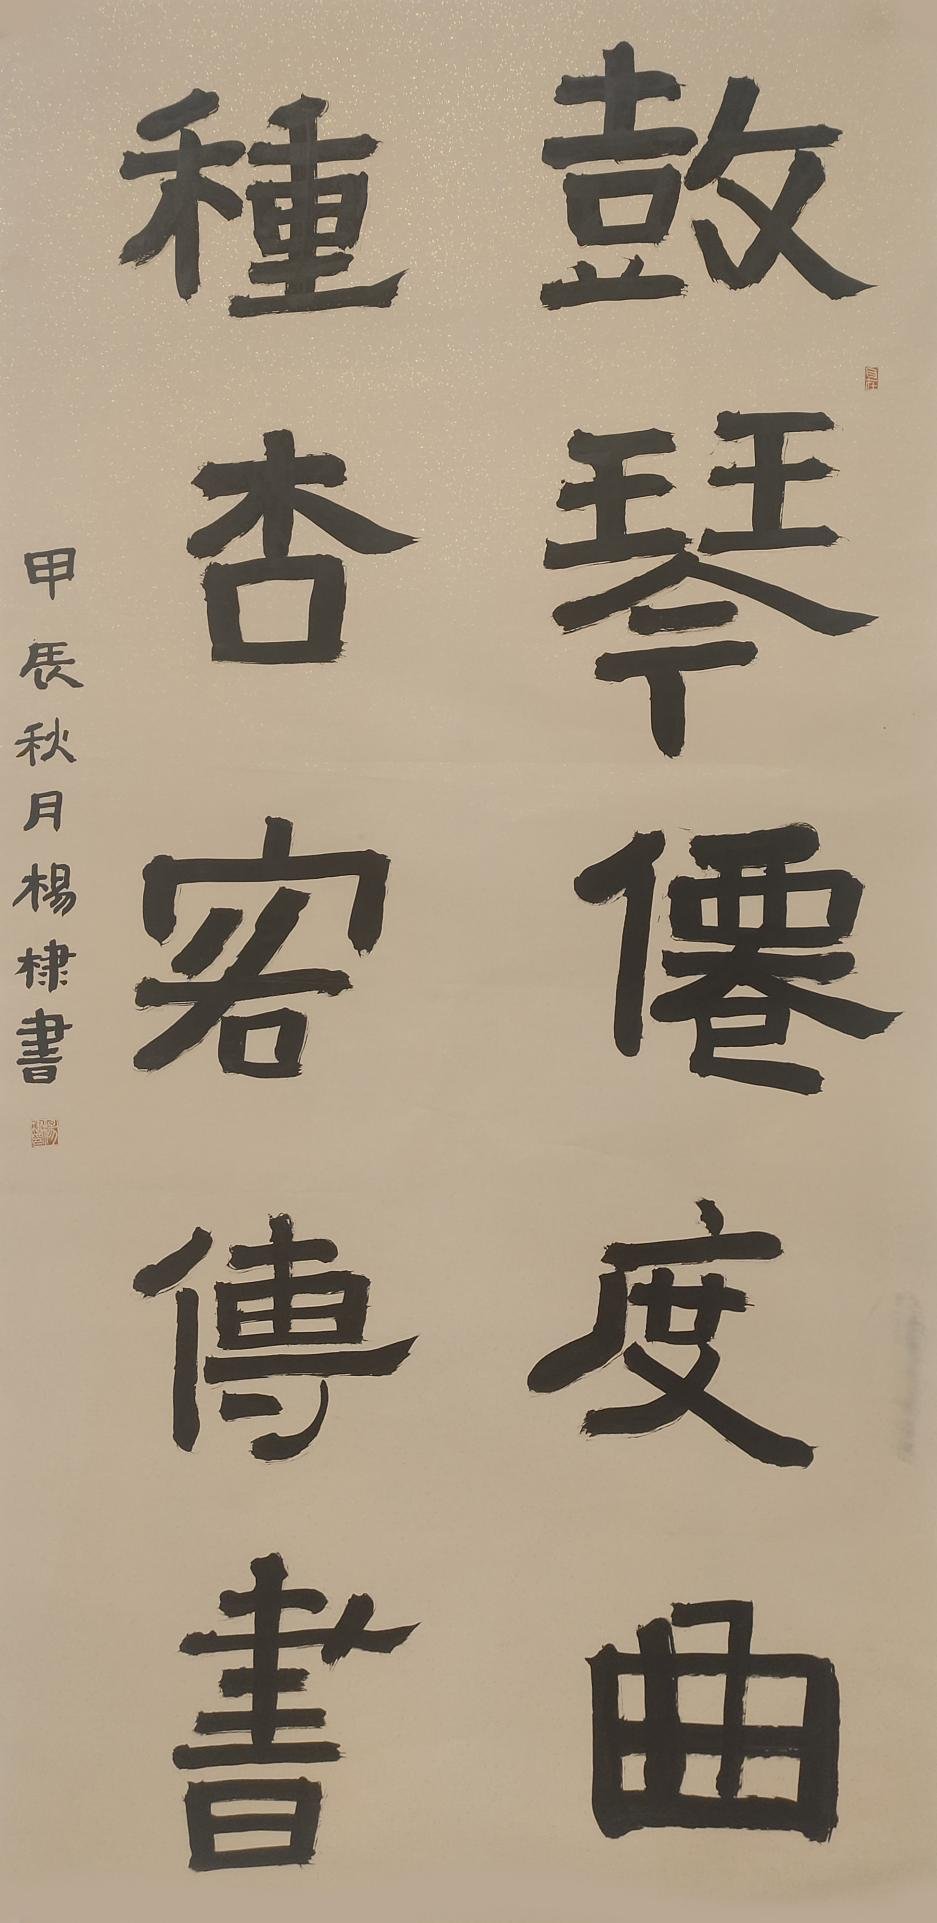 鼓琴僊度曲
種杏客傳書
甲辰秋月楊棣書